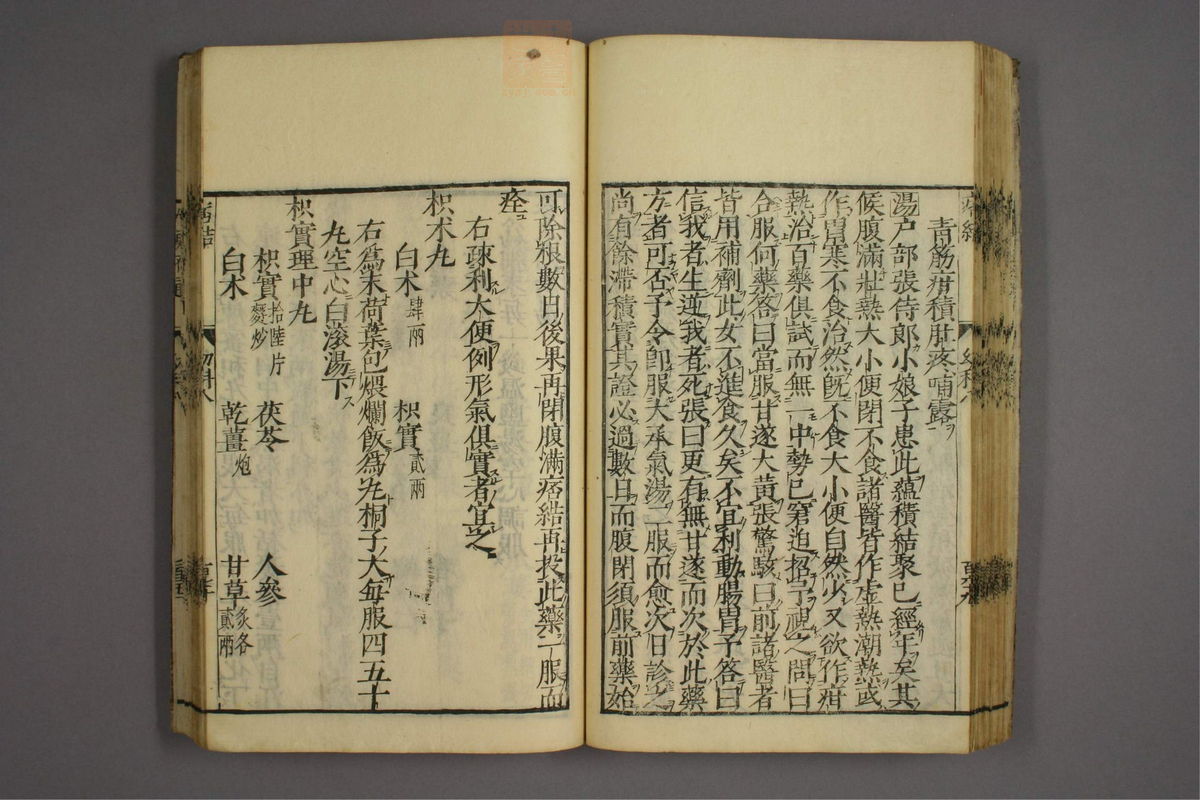 青筋疳積肚疼哺露
湯戸部張侍郎小娘子患此蘊積結聚已經年矣其
候腹滿壯熱大小便閉不食諸醫皆作虛熱潮熱或
作胃寒不食治然既不食大小便自然少又欲作疳
熱治百藥俱試而無一中勢已窘迫招予視之問曰
合服何藥答曰當服甘遂大黃張驚駭曰前諸醫者
皆用補劑此女不進食久矣不宜利動腸胃予答曰
信我者生逆我者死張曰更有無甘遂而次於此藥
方者可否予令卽服大承氣湯二服而愈次日診之
尚有餘滯積實其證必過數日而腹閉須服前藥始
可除根數日後果再閉腹滿痞結再投此藥一服而
痊
右疎利大便例形氣俱實者宜之
枳术丸
白术肆兩 枳實貳兩
右爲末荷葉包煨爛飯爲丸桐子大每服四五十
丸空心白滾湯下
枳實理中丸
枳實拾陸片麩炒 茯苓 人參
白术 乾薑炮 甘草炙各貳兩